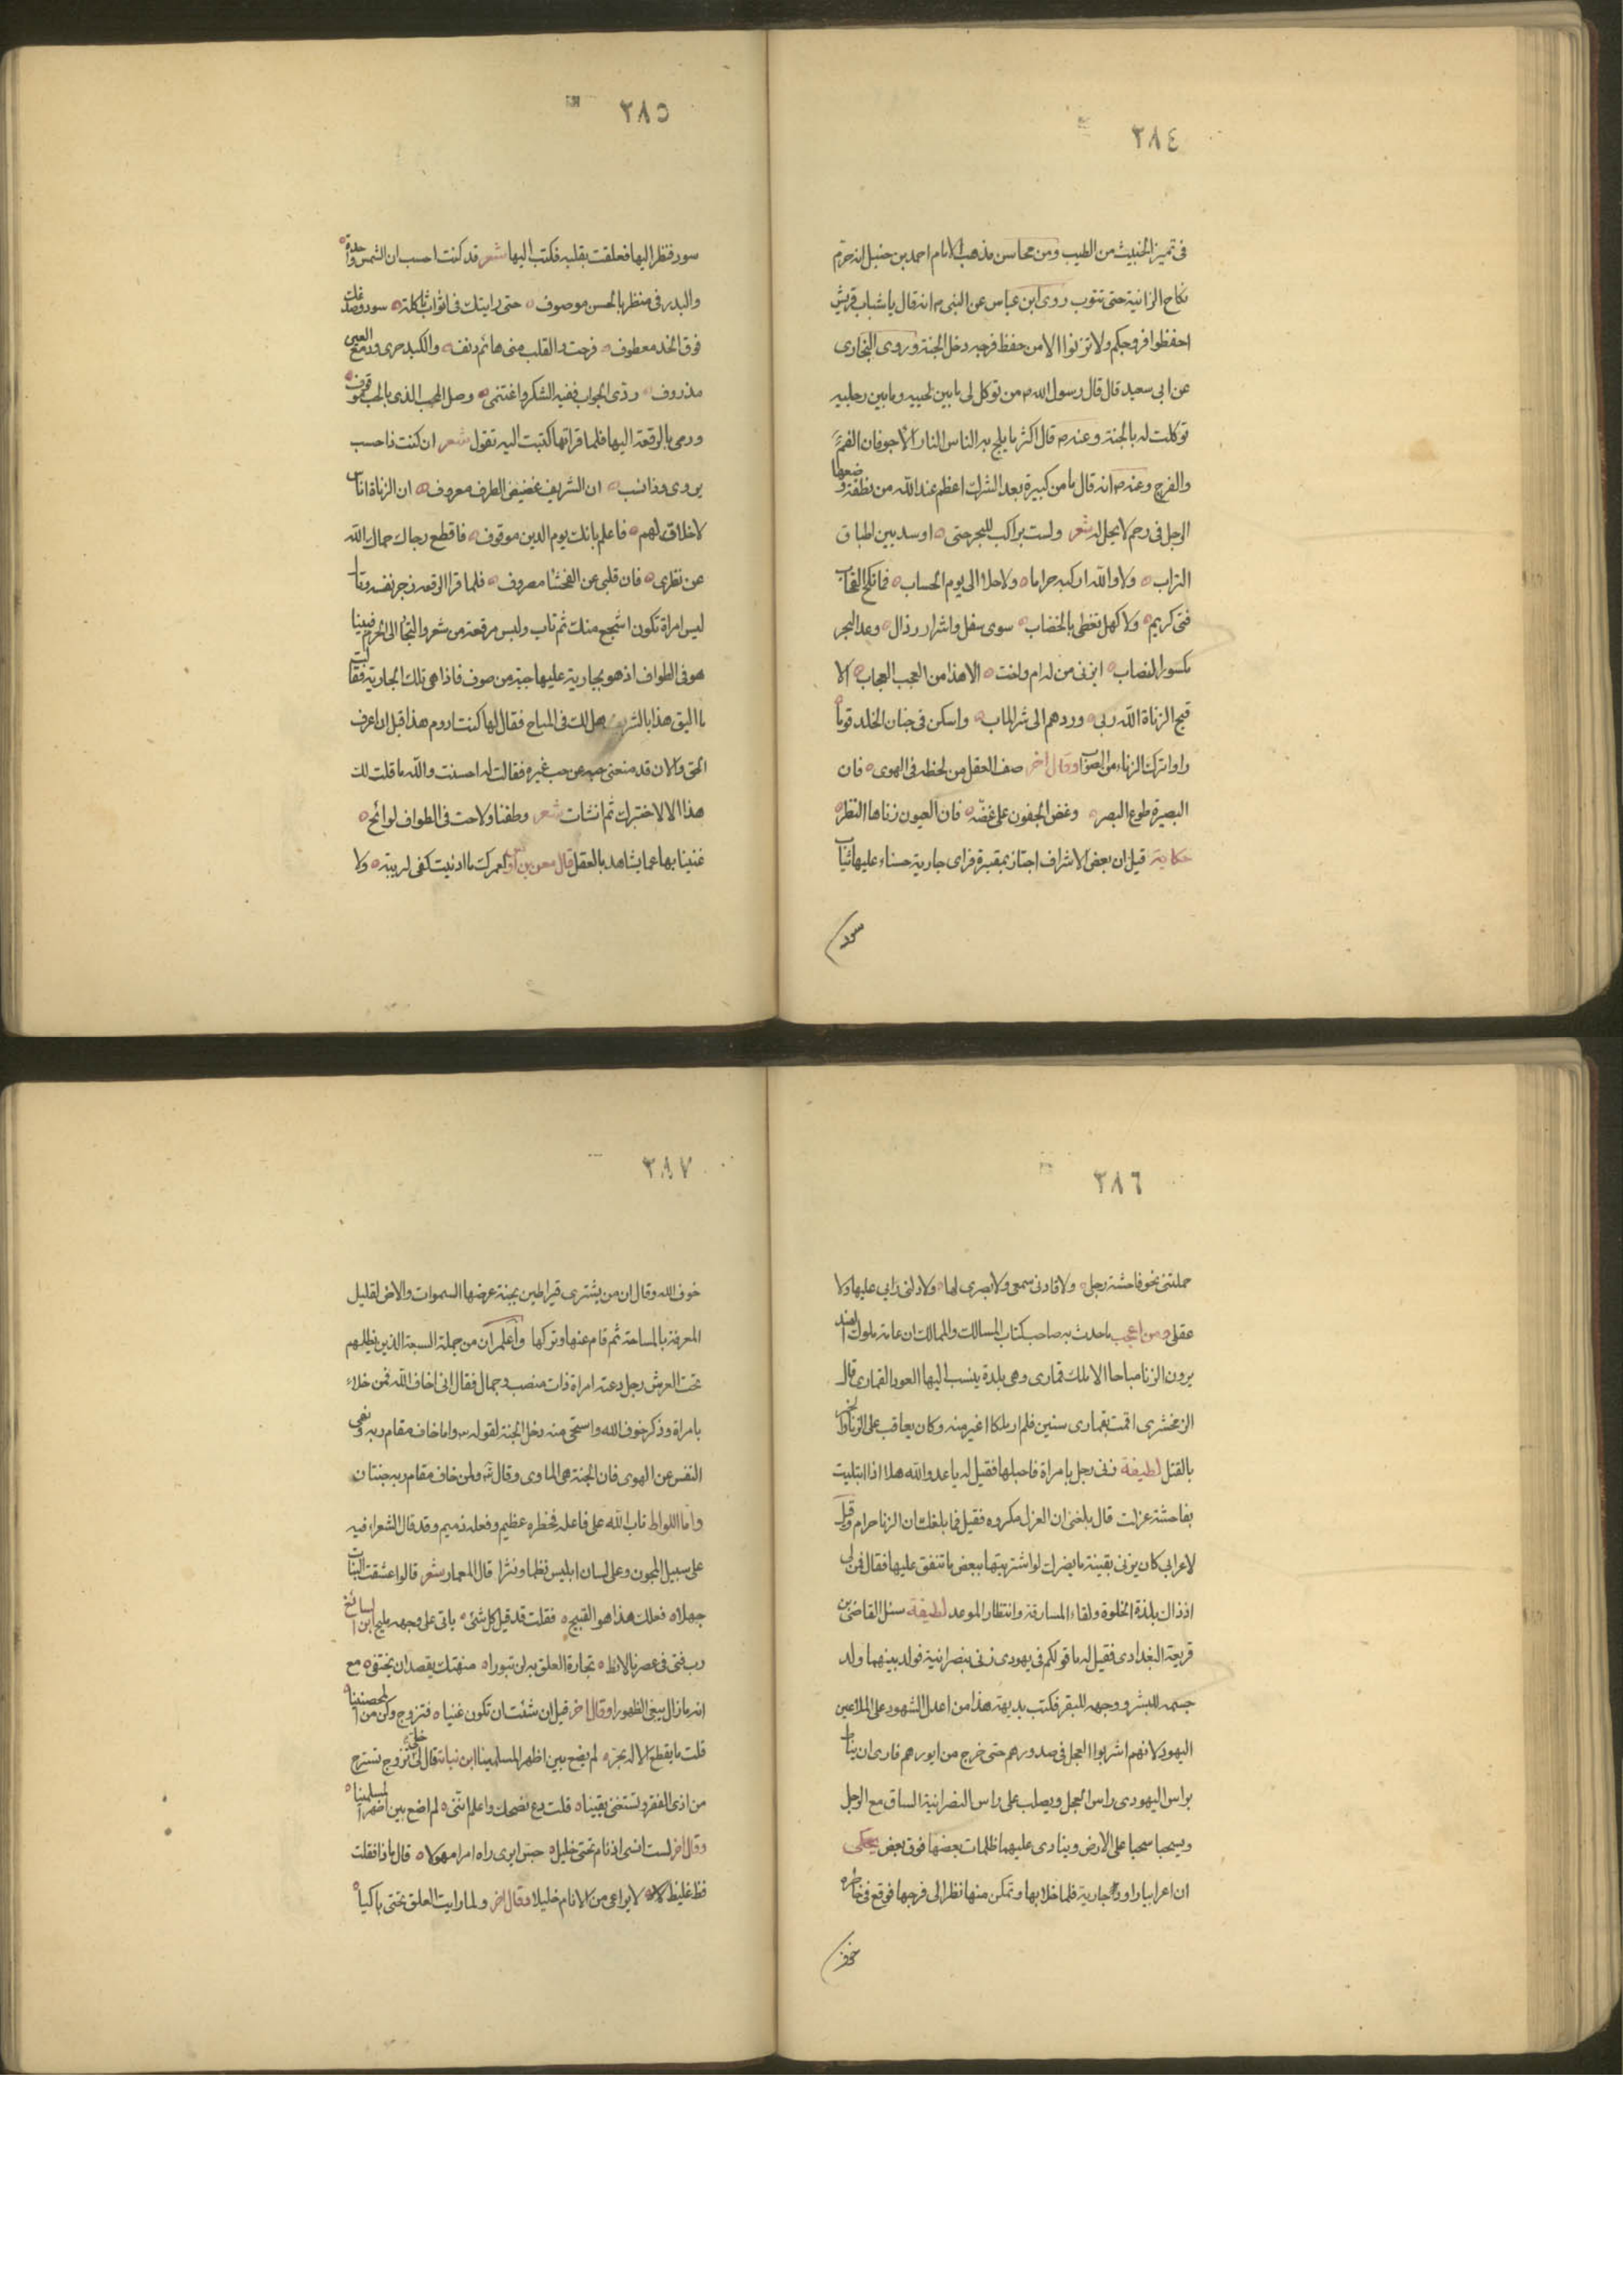 ٣٨٤
في تميز الخبيث من الطيب ومن محاسن مذهب الامام احمد بن حنبل انه حرم
نكاح الزانية حتى تتوب روى ابن عباس عن النبي م انه قال يا شباب قريش
احفظوا فروجكم ولا تزنوا الا من حفظ فرجه دخل الجنة وروى البخارى
عن ابى سعيد قال قال رسول الله م من توكل لى ما بين لحييه وما بين رجليه
توكلت له بالجنة وعنه م قال اكثر ما يلج به الناس النار الاجوفان الفم
والفرج وعنه م انه قال ما من كبيرة بعد الشرك اعظم عند الله من نطفة وضعها
الرجل في رحم لا يحل له شعر ولست براكب للبحر حتى اوسد بين اطباق
التراب ولا والله اركبه حراما ولا حلا الى يوم الحساب فما نكح القحاب
فتى كريم ولا كهل تغطى بالخضاب سوى سفل واشرار رذال وعد البحر
مكسور النصاب ايزنى من له ام واخت الا هذا من العجب العجاب الا
قبح الزناة الله ربى وردهم الى شر الماب واسكن في جنان الخلد قوما
راوا ترك الزناء من الصواب وقال اخر صف العقل من لحظه في الهوى فان
البصيرة طوع البصر وغض الجفون على غضه فان العيون زناها النظر
حكاية قيل ان بعض الاشراف اجتاز بمقبرة فراى جارية حسناء عليها ثياب
سود
٣٨٥
سود فنظر اليها فعلقت بقلبه فكتب اليها شعر قد كنت احسب ان الشمس واحدة
والبدر في منظر بالحسن موصوف حتى رايتك في اثواب ثاكلة سود وصدغك
فوق الخد معطوف فرحت والقلب منى هائم دنف والكبد حرى ودمع العين
مذروف ردى الجواب ففيه الشكر واغتنمى وصل المحب الذى بالحب موقوف
ورمى بالرقعة اليها فلما قراتها كتبت اليه تقول شعر ان كنت ذا حسب
يروى وذا نسب ان الشريف غضيض الطرف معروف ان الزناة اناس
لا خلاق لهم فاعلم بانك يوم الدين موقوف فاقطع رجاك حماك الله
عن نظرى فان قلبى عن الفحشا مصروف فلما قرا الرقعه زجر نفسه وقال
ليس امراة تكون اشجع منك ثم تاب ولبس مرقعة من شعر والتجا الى الحرم فبينا
هو في الطواف اذ هو بجارية عليها جبة من صوف فاذا هى تلك الجارية فقالت
ما اليق هذا بالشريف هل لك في المباح فقال لها كنت اروم هذا قبل ان اعرف
الحق والان قد منعنى حبه عن حب غيره فقالت له احسنت والله ما قلت لك
هذا الا لاختبرك ثم انشات شعر وطفنا ولاحت في الطواف لوائح
غنينا بها عما يشاهد بالعقل قال معن بن اوس لعمرك ما ادنيت كفى لريبة ولا
٣٨٦
حملتنى نحو فاحشة رجلى ولا قادنى سمعى ولا بصرى لها ولا دلنى رايى عليها ولا
عقلى ومن اعجب ما حدث به صاحب كتاب المسالك والممالك ان عامة ملوك الهند
يرون الزنا مباحا الا ملك قمارى وهى بلدة ينسب اليها العود القمارى قال
الزمخشرى اقمت بقمارى سنين فلم ار ملكا اغير منه وكان يعاقب على الزنا والخمر
بالقتل لطيفة زنى رجل بامراة فاحبلها فقيل له يا عدو الله هلا اذا ابتليت
بفاحشة عزلت قال بلغنى ان العزل مكروه فقيل فما بلغك ان الزنا حرام وقيل
لاعرابى كان يزنى بقينة ما يضرك لو اشتريتها ببعض ما تنفق عليها فقال فمن لى
اذ ذاك بلذة الخلوة ولقاء المسارقة وانتظار الموعد لطيفة سئل القاضى بن
قريعة البغدادى فقيل له ما قولكم في يهودى زنى بنصرانية فولد بينهما ولد
جسمه للبشر ووجهه للبقر فكتب بديهة هذا من اعدل الشهود على الملاعين
اليهود لانهم اشربوا العجل في صدورهم حتى خرج من ايورهم فارى ان يناط
براس اليهودى راس العجل ويصلب على راس النصرانية الساق مع الرجل
ويسحبا سحبا على الارض وينادى عليهما ظلمات بعضها فوق بعض يحكى
ان اعرابيا راود جارية فلما خلا بها وتمكن منها نظر الى فرجها فوقع في خاطره
خوف
٣٨٧
خوف الله وقال ان من يشترى قيراطين بجنة عرضها السموات والارض لقليل
المعرفة بالمساحة ثم قام عنها وتركها واعلم ان من جملة السبعة الذين يظلهم
تحت العرش رجل دعته امراة ذات منصب وجمال فقال انى اخاف الله فمن خلاء
بامراة وذكر خوف الله واستحى منه دخل الجنة لقوله واما خاف مقام ربه ونهى
النفس عن الهوى فان الجنة هى الماوى وقال ولمن خاف مقام ربه جنتان
واما اللواط تاب الله على فاعله فخطره عظيم وفعله ذميم وقد قال الشعراء فيه
على سبيل المجون وعلى لسان ابليس نظما ونثرا قال المعمار شعر قالوا عشقت البنات
جهلا فعلك هذا هو القبيح فقلت قد قيل كل شئ ياتى على وجهه مليح ابن الصائغ
رب فتى في عصرنا لائط تجارة العلق به لن تبورا منهتك يقصد ان يختفى مع
انه ما زال يبغى الظهورا وقال اخر قيل ان شئت ان تكون غنيا فتزوج وكن من المحصنينا
قلت ما يقطع الاله بحر لم يضع بين اظهر المسلمينا ابن نباتة قال لى خلى تزوج تسترح
من اذى الفقر وتستغنى يقينا قلت دع نصحك واعلم اننى لم اضع بين اظهر المسلمينا
وقال اخر لست انسى اذ نام تحتى خليل حبس ايرى راه امرا مهولا قال ماذا فقلت
فظ غليظ لا يراعى من الانام خليلا وقال اخر ولما رايت العلق تحتى باكيا